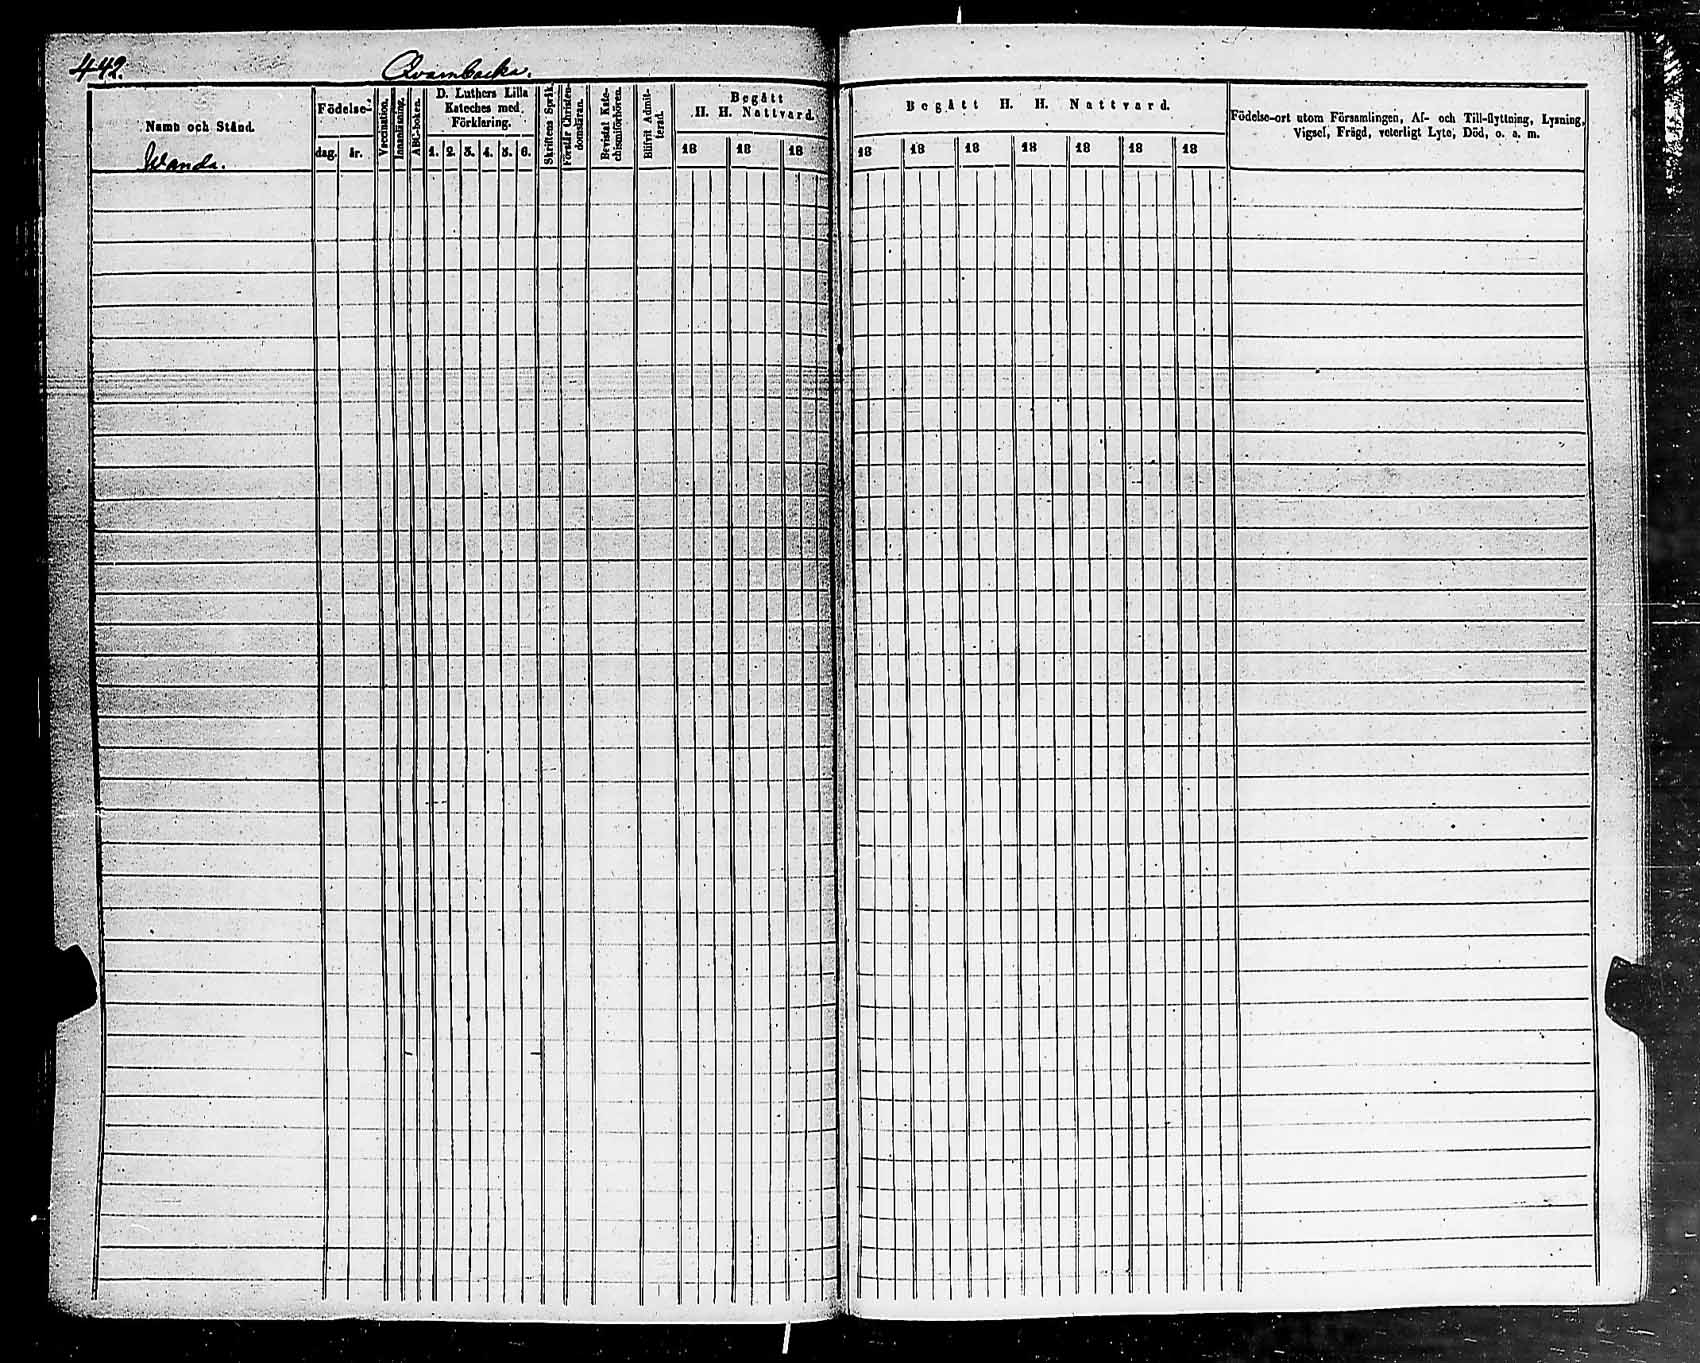 442.
Qvarnbacka.
Namn och Stånd.
Födelse-
dag. år.
Vaccination.
Innanläsning.
ABC-boken.
D. Luthers Lilla
Kateches med
Förklaring.
1. 2. 3. 4. 5. 6.
Skriftens Språk.
Förstår Christen-
domsläran.
Bevistat Kate-
chismiförhören.
Blifvit Admit-
terad.
Begått
H. H. Nattvard.
18 18 18
Begått H. H. Nattvard.
18 18 18 18 18 18 18
Födelse-ort utom Församlingen, Af- och Till-flyttning, Lysning,
Vigsel, Frägd, veterligt Lyte, Död, o. a. m.